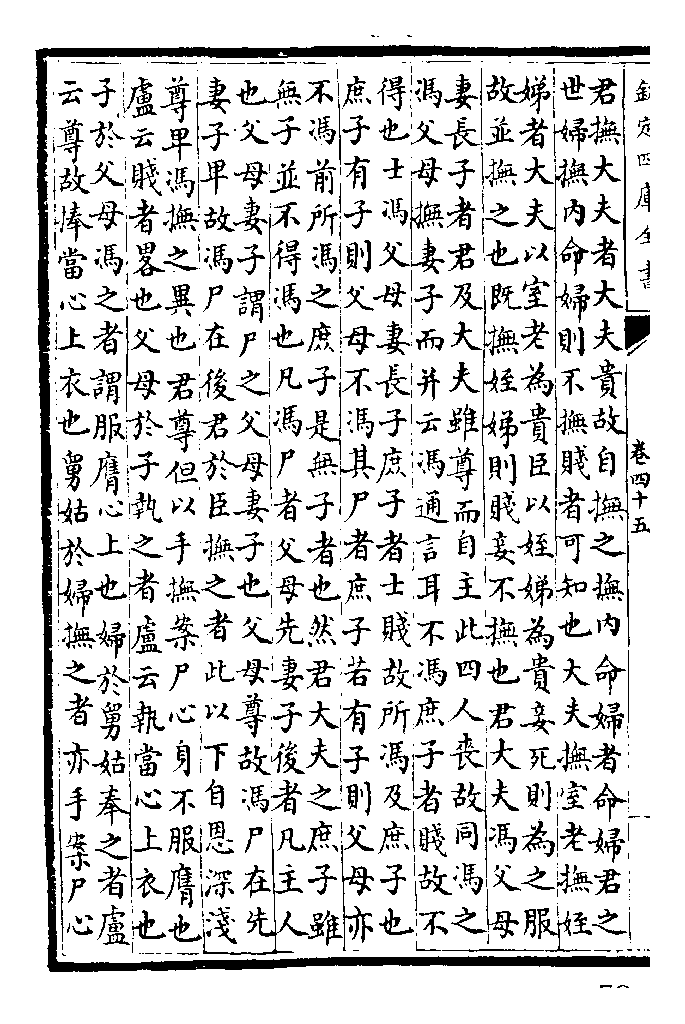 欽定四庫全書
卷四十五
君撫大夫者大夫貴故自撫之撫内命婦者命婦君之
世婦撫内命婦則不撫賤者可知也大夫撫室老撫姪
娣者大夫以室老為貴臣以姪娣為貴妾死則為之服
故並撫之也既撫姪娣則賤妾不撫也君大夫馮父母
妻長子者君及大夫雖尊而自主此四人喪故同馮之
馮父母撫妻子而并云馮通言耳不馮庶子者賤故不
得也士馮父母妻長子庶子者士賤故所馮及庶子也
庶子有子則父母不馮其尸者庶子若有子則父母亦
不馮前所馮之庶子是無子者也然君大夫之庶子雖
無子並不得馮也凡馮尸者父母先妻子後者凡主人
也父母妻子謂尸之父母妻子也父母尊故馮尸在先
妻子卑故馮尸在後君於臣撫之者此以下自恩深淺
尊卑馮撫之異也君尊但以手撫案尸心身不服膺也
盧云賤者畧也父母於子執之者盧云執當心上衣也
子於父母馮之者謂服膺心上也婦於舅姑奉之者盧
云尊故捧當心上衣也舅姑於婦撫之者亦手案尸心